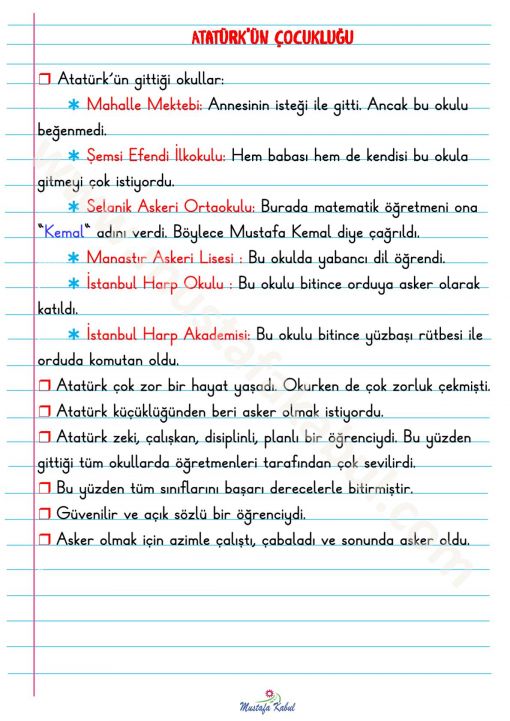 ATATÜRK'ÜN ÇOCUKLUĞU
❒ Atatürk'ün gittiği okullar:
* Mahalle Mektebi: Annesinin isteği ile gitti. Ancak bu okulu
beğenmedi.
* Şemsi Efendi İlkokulu: Hem babası hem de kendisi bu okula
gitmeyi çok istiyordu.
* Selanik Askeri Ortaokulu: Burada matematik öğretmeni ona
"Kemal" adını verdi. Böylece Mustafa Kemal diye çağrıldı.
* Manastır Askeri Lisesi : Bu okulda yabancı dil öğrendi.
* İstanbul Harp Okulu : Bu okulu bitince orduya asker olarak
katıldı.
* İstanbul Harp Akademisi: Bu okulu bitince yüzbaşı rütbesi ile
orduda komutan oldu.
❒ Atatürk çok zor bir hayat yaşadı. Okurken de çok zorluk çekmişti.
❒ Atatürk küçüklüğünden beri asker olmak istiyordu.
❒ Atatürk zeki, çalışkan, disiplinli, planlı bir öğrenciydi. Bu yüzden
gittiği tüm okullarda öğretmenleri tarafından çok sevilirdi.
❒ Bu yüzden tüm sınıflarını başarı derecelerle bitirmiştir.
❒ Güvenilir ve açık sözlü bir öğrenciydi.
❒ Asker olmak için azimle çalıştı, çabaladı ve sonunda asker oldu.
www.mustafakabul.com
Mustafa Kabul